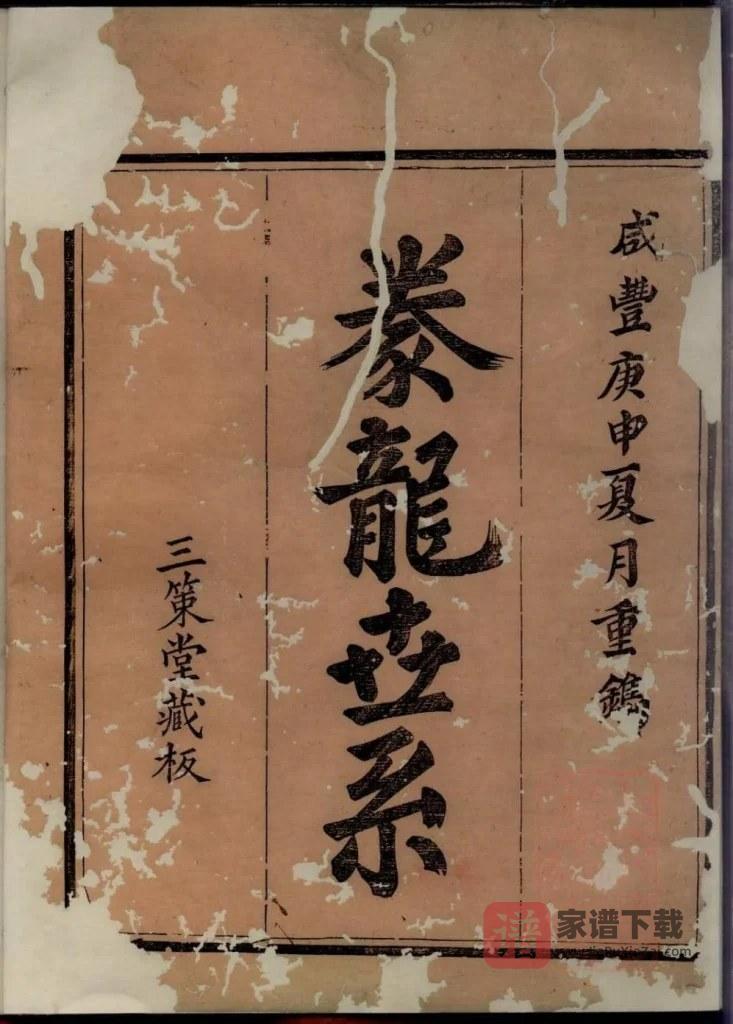 咸豐庚申夏月重鐫
豢龍世系
三策堂藏板
谱
家谱下载
www.JiaPuXiaZai.com